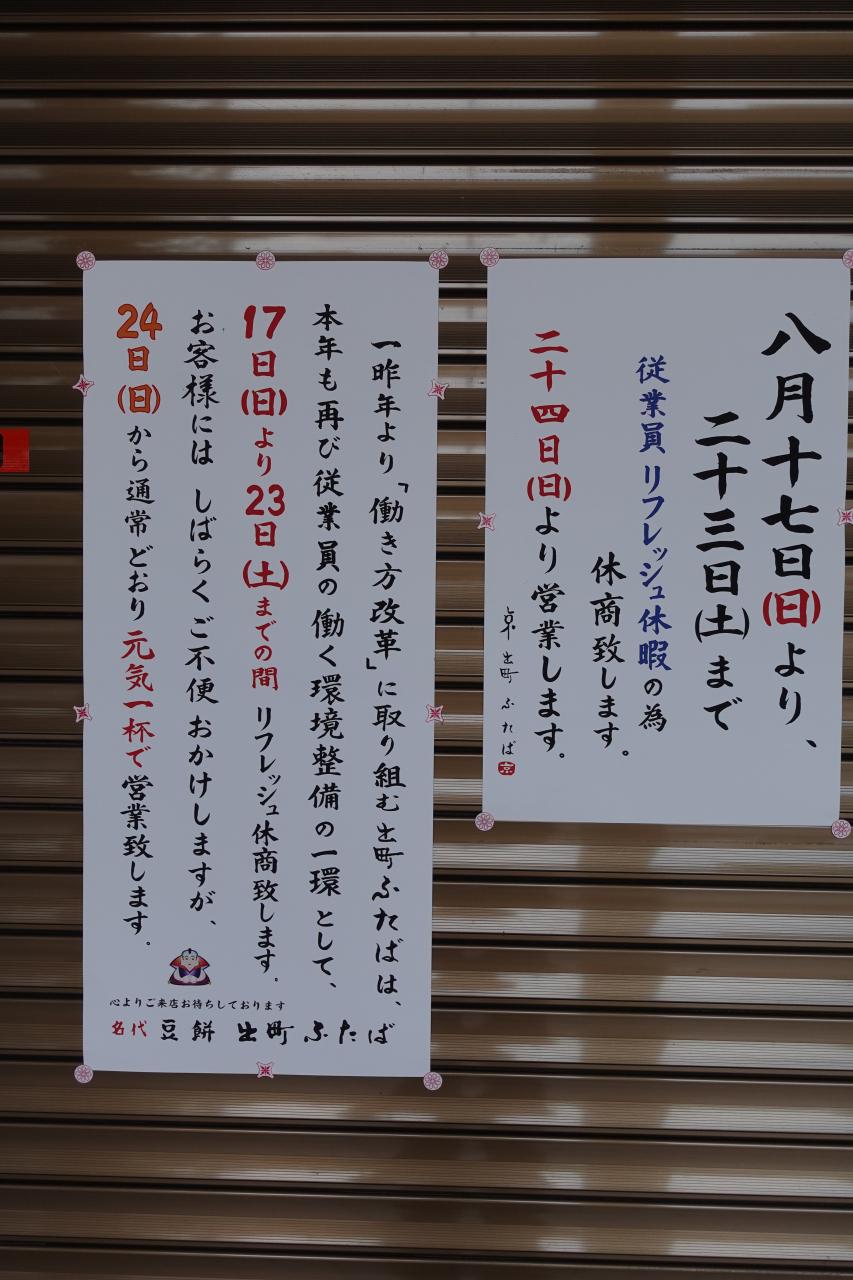 八月十七日(日)より、
二十三日(土)まで
従業員リフレッシュ休暇の為
休商致します。
二十四日(日)より営業します。
京 出町 ふたば
京
一昨年より「働き方改革」に取り組む出町ふたばは、
本年も再び従業員の働く環境整備の一環として、
17日(日)より23日(土)までの間リフレッシュ休商致します。
お客様には しばらくご不便おかけしますが、
24日(日)から通常どおり元気一杯で営業致します。
心よりご来店お待ちしております
名代 豆餅 出町ふたば